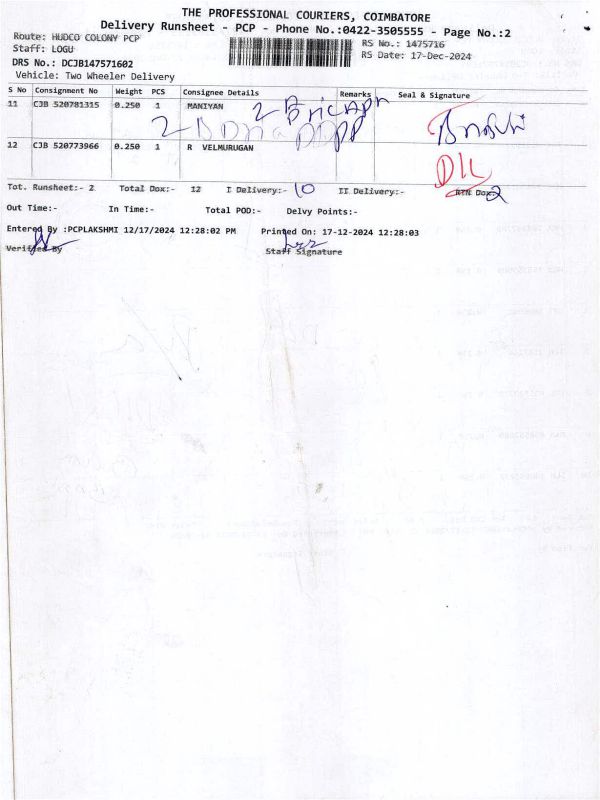 THE PROFESSIONAL COURIERS, COIMBATORE
Delivery Runsheet - PCP - Phone No.:0422-3505555 - Page No.:2
Route: HUDCO COLONY PCP RS No.: 1475716
Staff: LOGU RS Date: 17-Dec-2024
DRS No.: DCJB147571602
Vehicle: Two Wheeler Delivery
S No Consignment No Weight PCS Consignee Details Remarks Seal & Signature
11 CJB 520781315 0.250 1 MANIYAN
12 CJB 520773966 0.250 1 R VELMURUGAN
D/L
Tot. Runsheet:- 2 Total Dox:- 12 I Delivery:- 10 II Delivery:- RTN Dox:- 2
Out Time:- In Time:- Total POD:- Delvy Points:-
Entered By :PCPLAKSHMI 12/17/2024 12:28:02 PM Printed On: 17-12-2024 12:28:03
Verified By Staff Signature